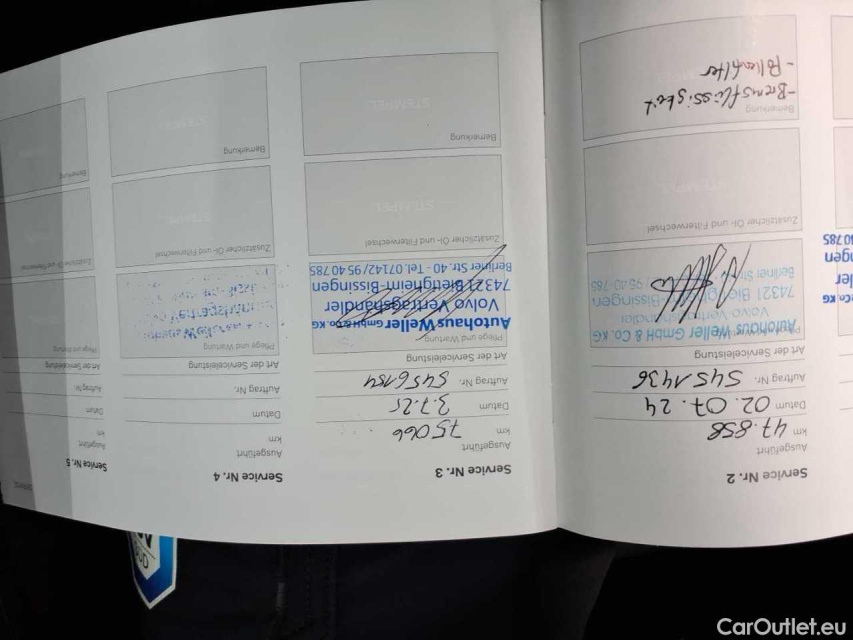 Service Nr. 2
Ausgeführt
km 47.858
Datum 02.07.24
Auftrag Nr. 5451436
Art der Serviceleistung
Autohaus Weller GmbH & Co. KG
Volvo Vertragshändler
74321 Bietigheim-Bissingen
Berliner Str. 40 95 40 785
Zusätzlicher Öl- und Filterwechsel
STEMPEL
Bemerkung
-Bremsflüssigkeit
-Pollenfilter
Service Nr. 3
Ausgeführt
km 75066
Datum 3.7.25
Auftrag Nr. 5456154
Art der Serviceleistung
Pflege und Wartung
Autohaus Weller GmbH & Co. KG
Volvo Vertragshändler
74321 Bietigheim-Bissingen
Berliner Str. 40 - Tel. 07142/95 40 785
Zusätzlicher Öl- und Filterwechsel
STEMPEL
Bemerkung
STEMPEL
Service Nr. 4
Ausgeführt
km
Datum
Auftrag Nr.
Art der Serviceleistung
Pflege und Wartung
Zusätzlicher Öl- und Filterwechsel
STEMPEL
Bemerkung
Service Nr. 5
Ausgeführt
km
Datum
Auftrag Nr.
Art der Serviceleistung
Pflege und Wartung
Zusätzlicher Öl- und Filterwechsel
Bemerkung
CarOutlet.eu